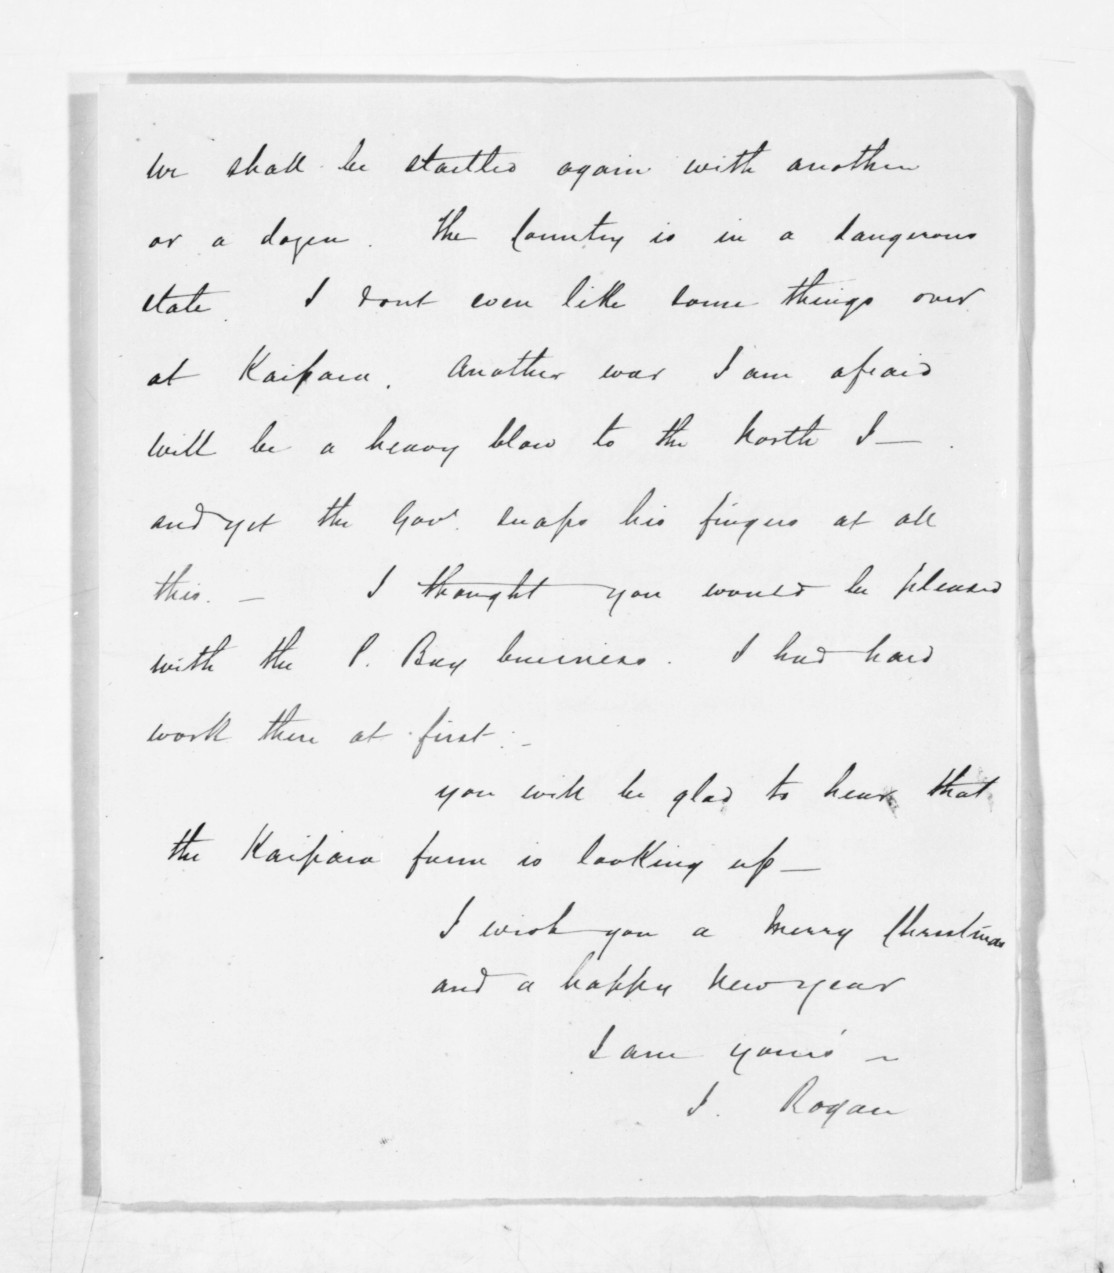 we shall be startled again with another
or a dozen. The Country is in a dangerous
state. I dont even like some things over
at Kaipara. Another war I am afraid
will be a heavy blow to the North I—.
and yet the Govr. snaps his fingers at all
this. — I thought you would be pleased
with the P. Bay business. I had hard
work there at first. —
you will be glad to hear that
the Kaipara farm is looking up —
I wish you a Merry Christmas
and a happy New year
I am yours —
J. Rogan